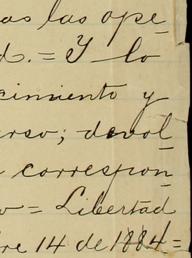 as las ope_
d. = Y lo
cimiento y
erso; devol_
correspon_
o = Libertad
re 14 de 1884 =